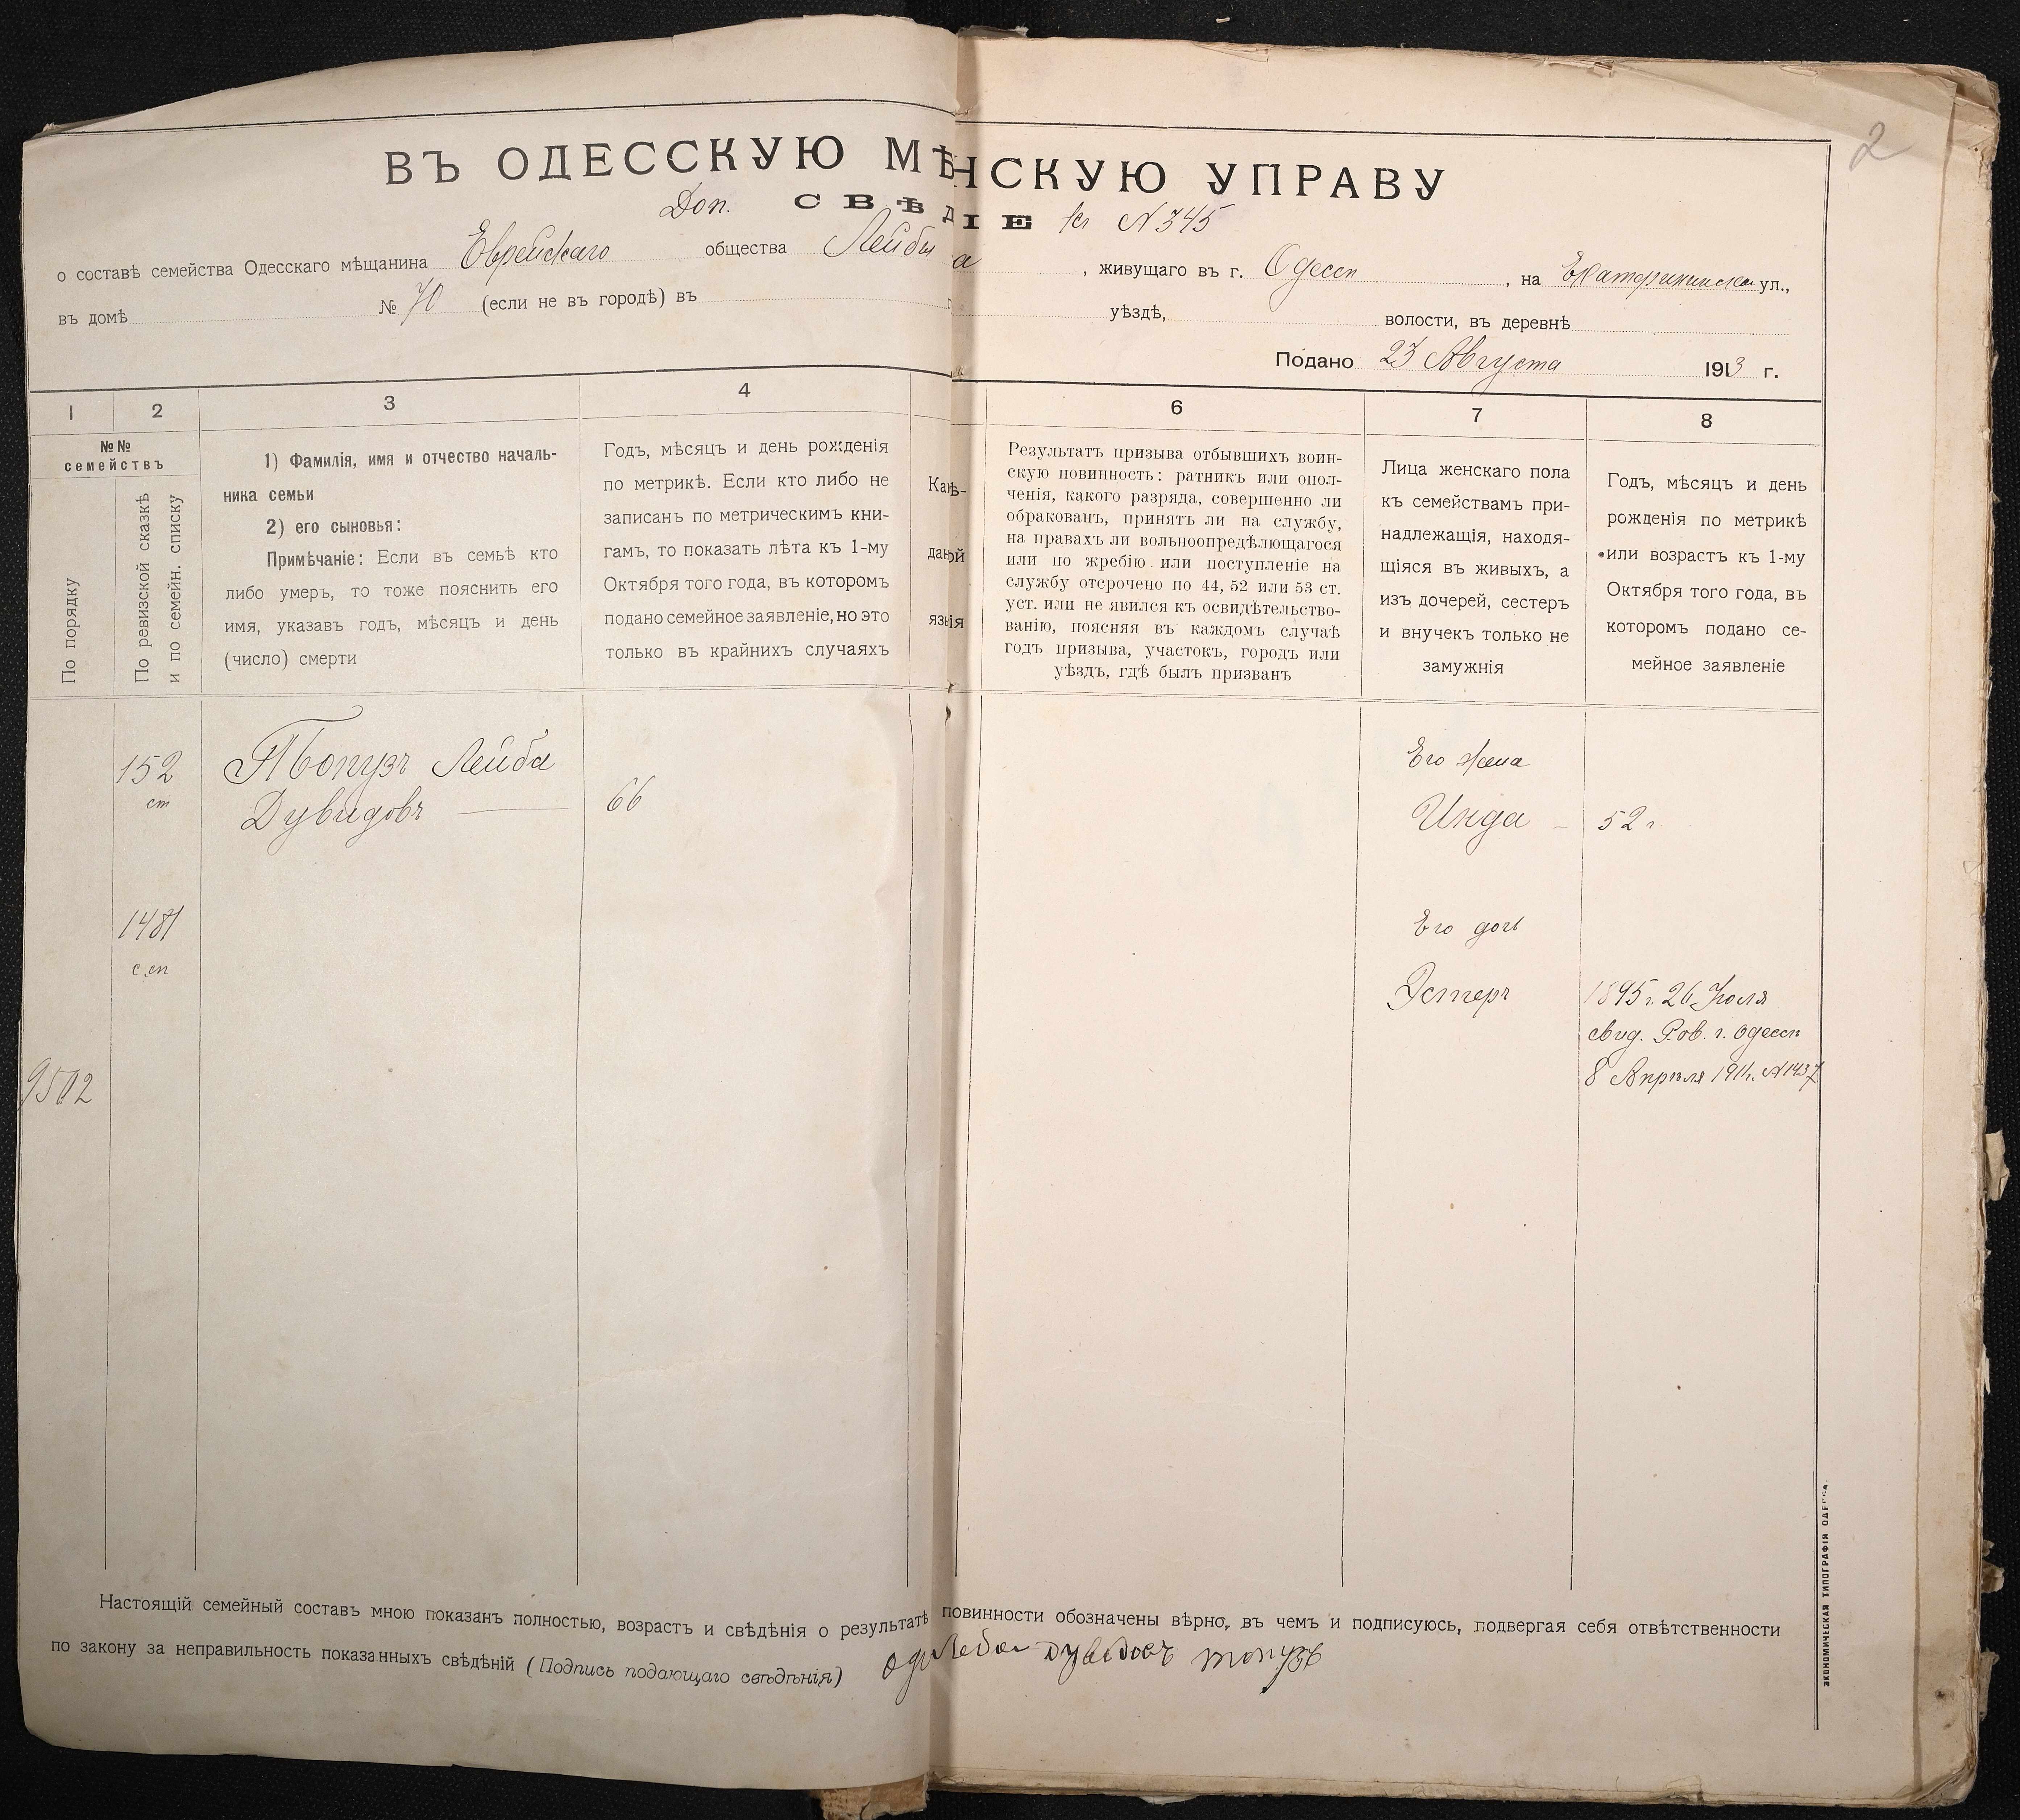 2
ВЪ ОДЕССКУЮ МѢНСКУЮ УПРАВУ
Доп. СВѢДІЕ къ №345
о составѣ семейства Одесскаго мѣщанина Еврейскаго общества Лейбы а, живущаго въ г. Одессѣ, на Екатерининской ул.,
въ домѣ № 70 (если не въ городѣ) въ уѣздѣ, волости, въ деревнѣ
Подано 23 Августа 1913 г.
1 2 3 4 6 7 8
№№
семействъ
По порядку
По ревизской сказкѣ
и по семейн. списку
1) Фамилія, имя и отчество началь-
ника семьи
2) его сыновья:
Примѣчаніе: Если въ семьѣ кто
либо умеръ, то тоже пояснить его
имя, указавъ годъ, мѣсяцъ и день
(число) смерти
Годъ, мѣсяцъ и день рожденія
по метрикѣ. Если кто либо не
записанъ по метрическимъ кни-
гамъ, то показать лѣта къ 1-му
Октября того года, въ которомъ
подано семейное заявленіе, но это
только въ крайнихъ случаяхъ
Результатъ призыва отбывшихъ воин-
скую повинность: ратникъ или опол-
ченія, какого разряда, совершенно ли
обракованъ, принятъ ли на службу,
на правахъ ли вольноопредѣлющагося
или по жребію или поступленіе на
службу отсрочено по 44, 52 или 53 ст.
уст. или не явился къ освидѣтельство-
ванію, поясняя въ каждомъ случаѣ
годъ призыва, участокъ, городъ или
уѣздъ, гдѣ былъ призванъ
Лица женскаго пола
къ семействамъ при-
надлежащія, находя-
щіяся въ живыхъ, а
изъ дочерей, сестеръ
и внучекъ только не
замужнія
Годъ, мѣсяцъ и день
рожденія по метрикѣ
или возрастъ къ 1-му
Октября того года, въ
которомъ подано се-
мейное заявленіе
152
ст
Топузъ Лейба
Дувидовъ
66
Его жена
Инда
52 г
1481
с.сп
Его дочь
Эстеръ
1895 г. 26 Іюля
свид. Р.ов. г. Одессы
8 Апрѣля 1911г. №1437
9502
Настоящій семейный составъ мною показанъ полностью, возрастъ и свѣдѣнія о результатѣ повинности обозначены вѣрно, въ чемъ и подписуюсь, подвергая себя отвѣтственности
по закону за неправильность показанныхъ свѣдѣній (Подпись подающаго свѣдѣнія) Леба дувидовъ топузъ
ЭКОНОМИЧЕСКАЯ ТИПОГРАФІЯ ОДЕССА.